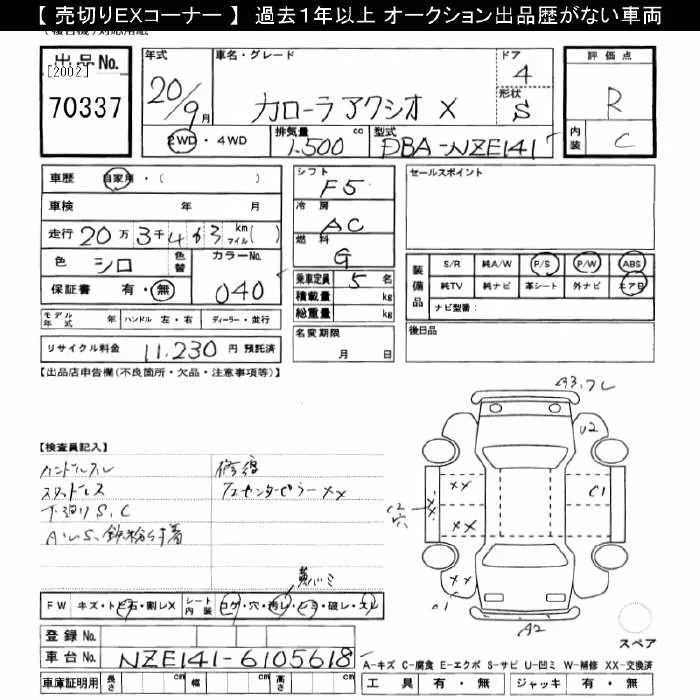 【 売切りEXコーナー 】 過去1年以上 オークション出品歴がない車両
出品No.
[2002]
70337
年式
20/9月
車名・グレード
カローラ アクシオ X
ドア
4
形状
S
評価点
R
内装
C
2WD・4WD
排気量
1.500 cc
型式
DBA-NZE141
車歴 自家用・( )
車検 年 月
走行 20万3千463 km マイル( )
色 シロ
色替
カラーNo.
040
保証書 有・無
モデル年式 年
ハンドル 左・右
ディーラー・並行
リサイクル料金 11,230 円 預託済
シフト
F5
冷房
AC
燃料
G
乗車定員 5 名
積載量 kg
総重量 kg
名変期限
月 日
セールスポイント
装備品
S/R 純A/W P/S P/W ABS
純TV 純ナビ 革シート 外ナビ エアB
ナビ型番:
後日品
【出品店申告欄(不良箇所・欠品・注意事項等)】
【検査員記入】
ハンドルスレ
スタッドレス
下廻りS,C
修復
センターピラーXX
A3,フレ
U2
C1
C2
穴
XX
XX
XX
A2
FW キズ・トビ石・割レX
シート内装 コゲ・穴・汚レ・シミ・破レ・スレ
登録No.
車台No. NZE141-6105618
車庫証明用 長さ cm 幅 cm 高さ cm
スペア
A-キズ C-腐食 E-エクボ S-サビ U-凹ミ W-補修 XX-交換済
工具 有・無 ジャッキ 有・無